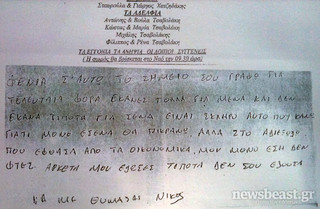 Σταυρούλα & Γιώργος Νατζηδάκης
ΤΑ ΑΔΕΛΦΙΑ
Αντώνης & Βούλα Τσαβολάκη
Κώστας & Μαρία Τσαβολάκη
Μιχάλης Τσαβολάκη
Φίλιππος & Ρένα Τσαβολάκη
ΤΑ ΕΓΓΟΝΙΑ ΤΑ ΑΝΗΨΙΑ ΟΙ ΛΟΙΠΟΙ ΣΥΓΓΕΝΕΙΣ
( Η σωρός θα βρίσκεται στο Ναό την 09.30 ώρα)
ΤΕΝΙΑ Σ'ΑΥΤΟ ΤΟ ΣΗΜΕΙΟ ΣΟΥ ΓΡΑΦΩ ΓΙΑ
ΤΕΛΕΥΤΑΙΑ ΦΟΡΑ ΕΚΑΝΕΣ ΠΟΛΛΑ ΓΙΑ ΜΕΝΑ ΚΑΙ ΔΕΝ
ΕΚΑΝΑ ΤΙΠΟΤΑ ΓΙΑ ΣΕΝΑ ΕΙΝΑΙ ΣΚΛΗΡΟ ΑΥΤΟ ΠΟΥ ΚΑΝΩ
ΓΙΑΤΙ ΜΟΝΟ ΕΣΕΝΑ ΘΑ ΠΙΚΡΑΝΩ ΑΛΛΑ ΣΤΟ ΑΔΙΕΞΟΔΟ
ΠΟΥ ΕΦΤΑΣΑ ΑΠΟ ΤΑ ΟΙΚΟΝΟΜΙΚΑ ΜΟΥ ΜΟΝΟ ΕΣΗ ΔΕΝ
ΦΤΕΣ ΑΡΚΕΤΑ ΜΟΥ ΕΔΕΣΕΣ ΤΙΠΟΤΑ ΔΕΝ ΣΟΥ ΕΔΩΣΑ
ΝΑ ΜΕ ΝΙΚΟΣ
newsbeast.gr